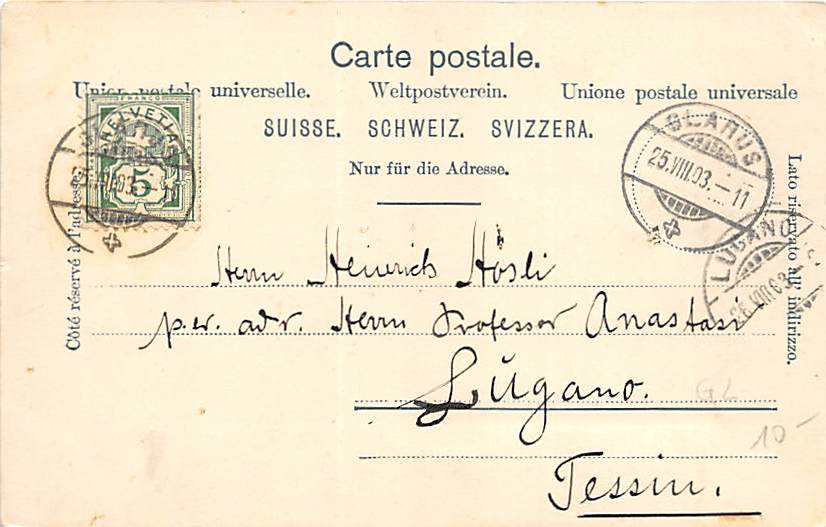 Carte postale.
Union postale universelle. Weltpostverein. Unione postale universale
SUISSE. SCHWEIZ. SVIZZERA.
Nur für die Adresse.
Côté réservé à l'adresse.
Lato riservato all' indirizzo.
FRANCO
HELVETIA
5
25.VIII.03. 11
GLARUS
25.VIII.03.—11
LUGANO
26.VIII.03
Herrn Heinrich Hösli
p.er. adr. Herrn Professor Anastasi
Lugano.
Tessin.
GL
10-